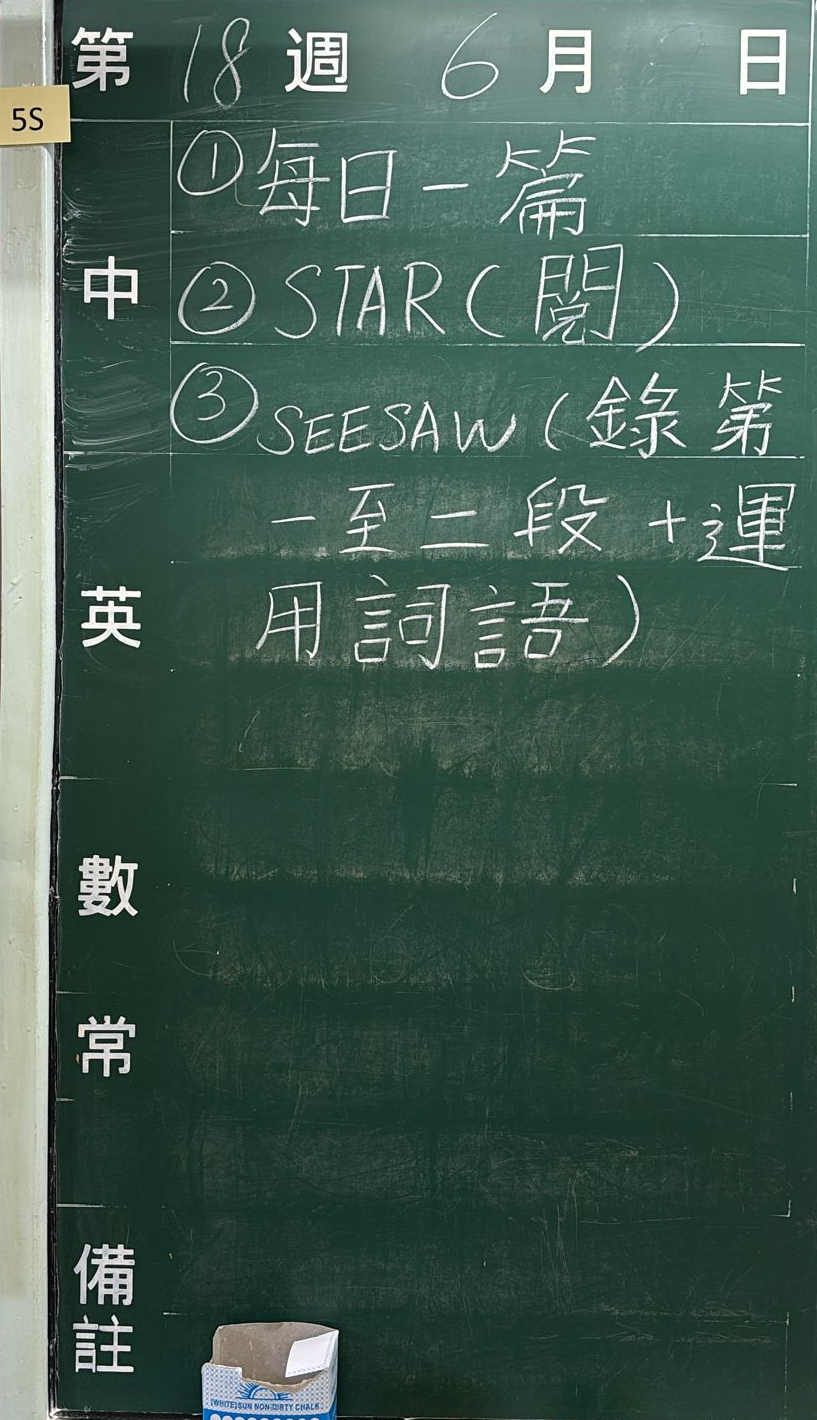 第 18 週 6 月 日
5S
中
①每日一篇
②STAR(閱)
③SEESAW(錄第
一至二段+運
用詞語)
英
數
常
備註
(WHITE)SUN NON-DIRTY CHALK